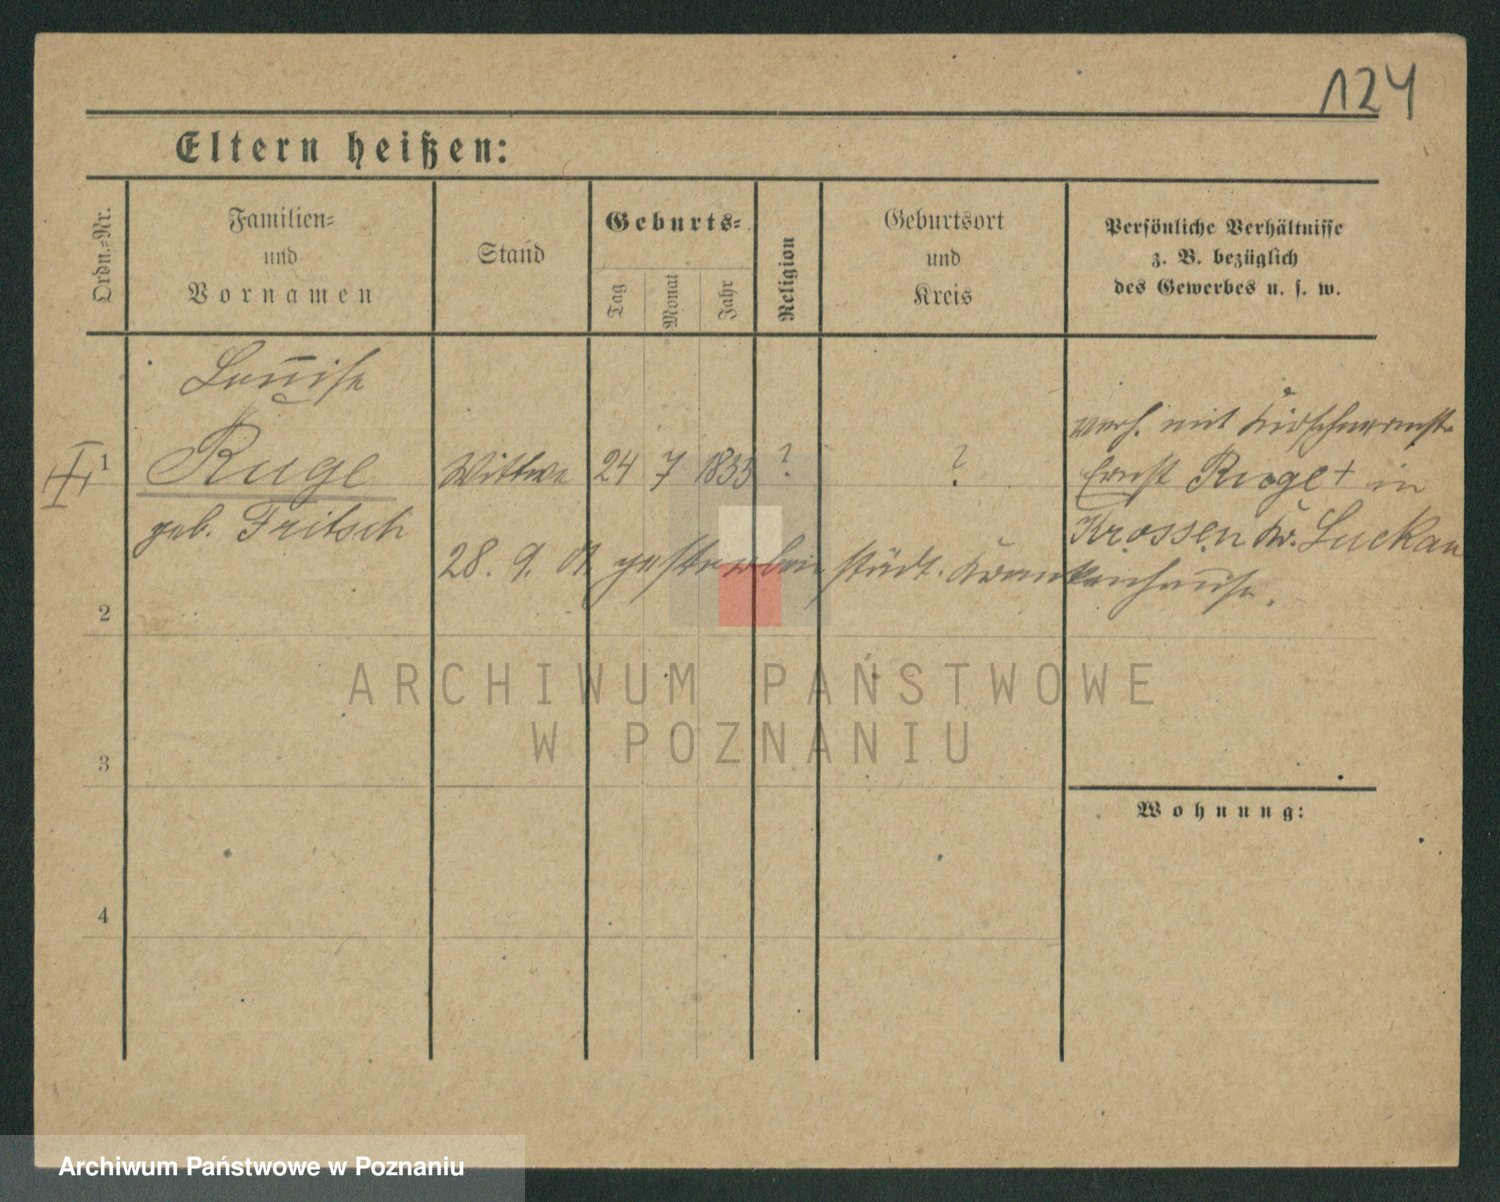 124
Eltern heißen:
Ordn.=Nr.
Familien=
und
Vornamen
Stand
Geburts=
Tag
Monat
Jahr
Religion
Geburtsort
und
Kreis
Persönliche Verhältnisse
z. B. bezüglich
des Gewerbes u. s. w.
Louise
1 Ruge Wittwe 24 7 1835 ? ?
geb. Fritsch
verh. mit
Ernst Ruge † in
Krossen Kr. Luckau
28. 9. 01 gestorben städt. Krankenhause.
2
3
4
Wohnung:
ARCHIWUM PAŃSTWOWE
W POZNANIU
Archiwum Państwowe w Poznaniu